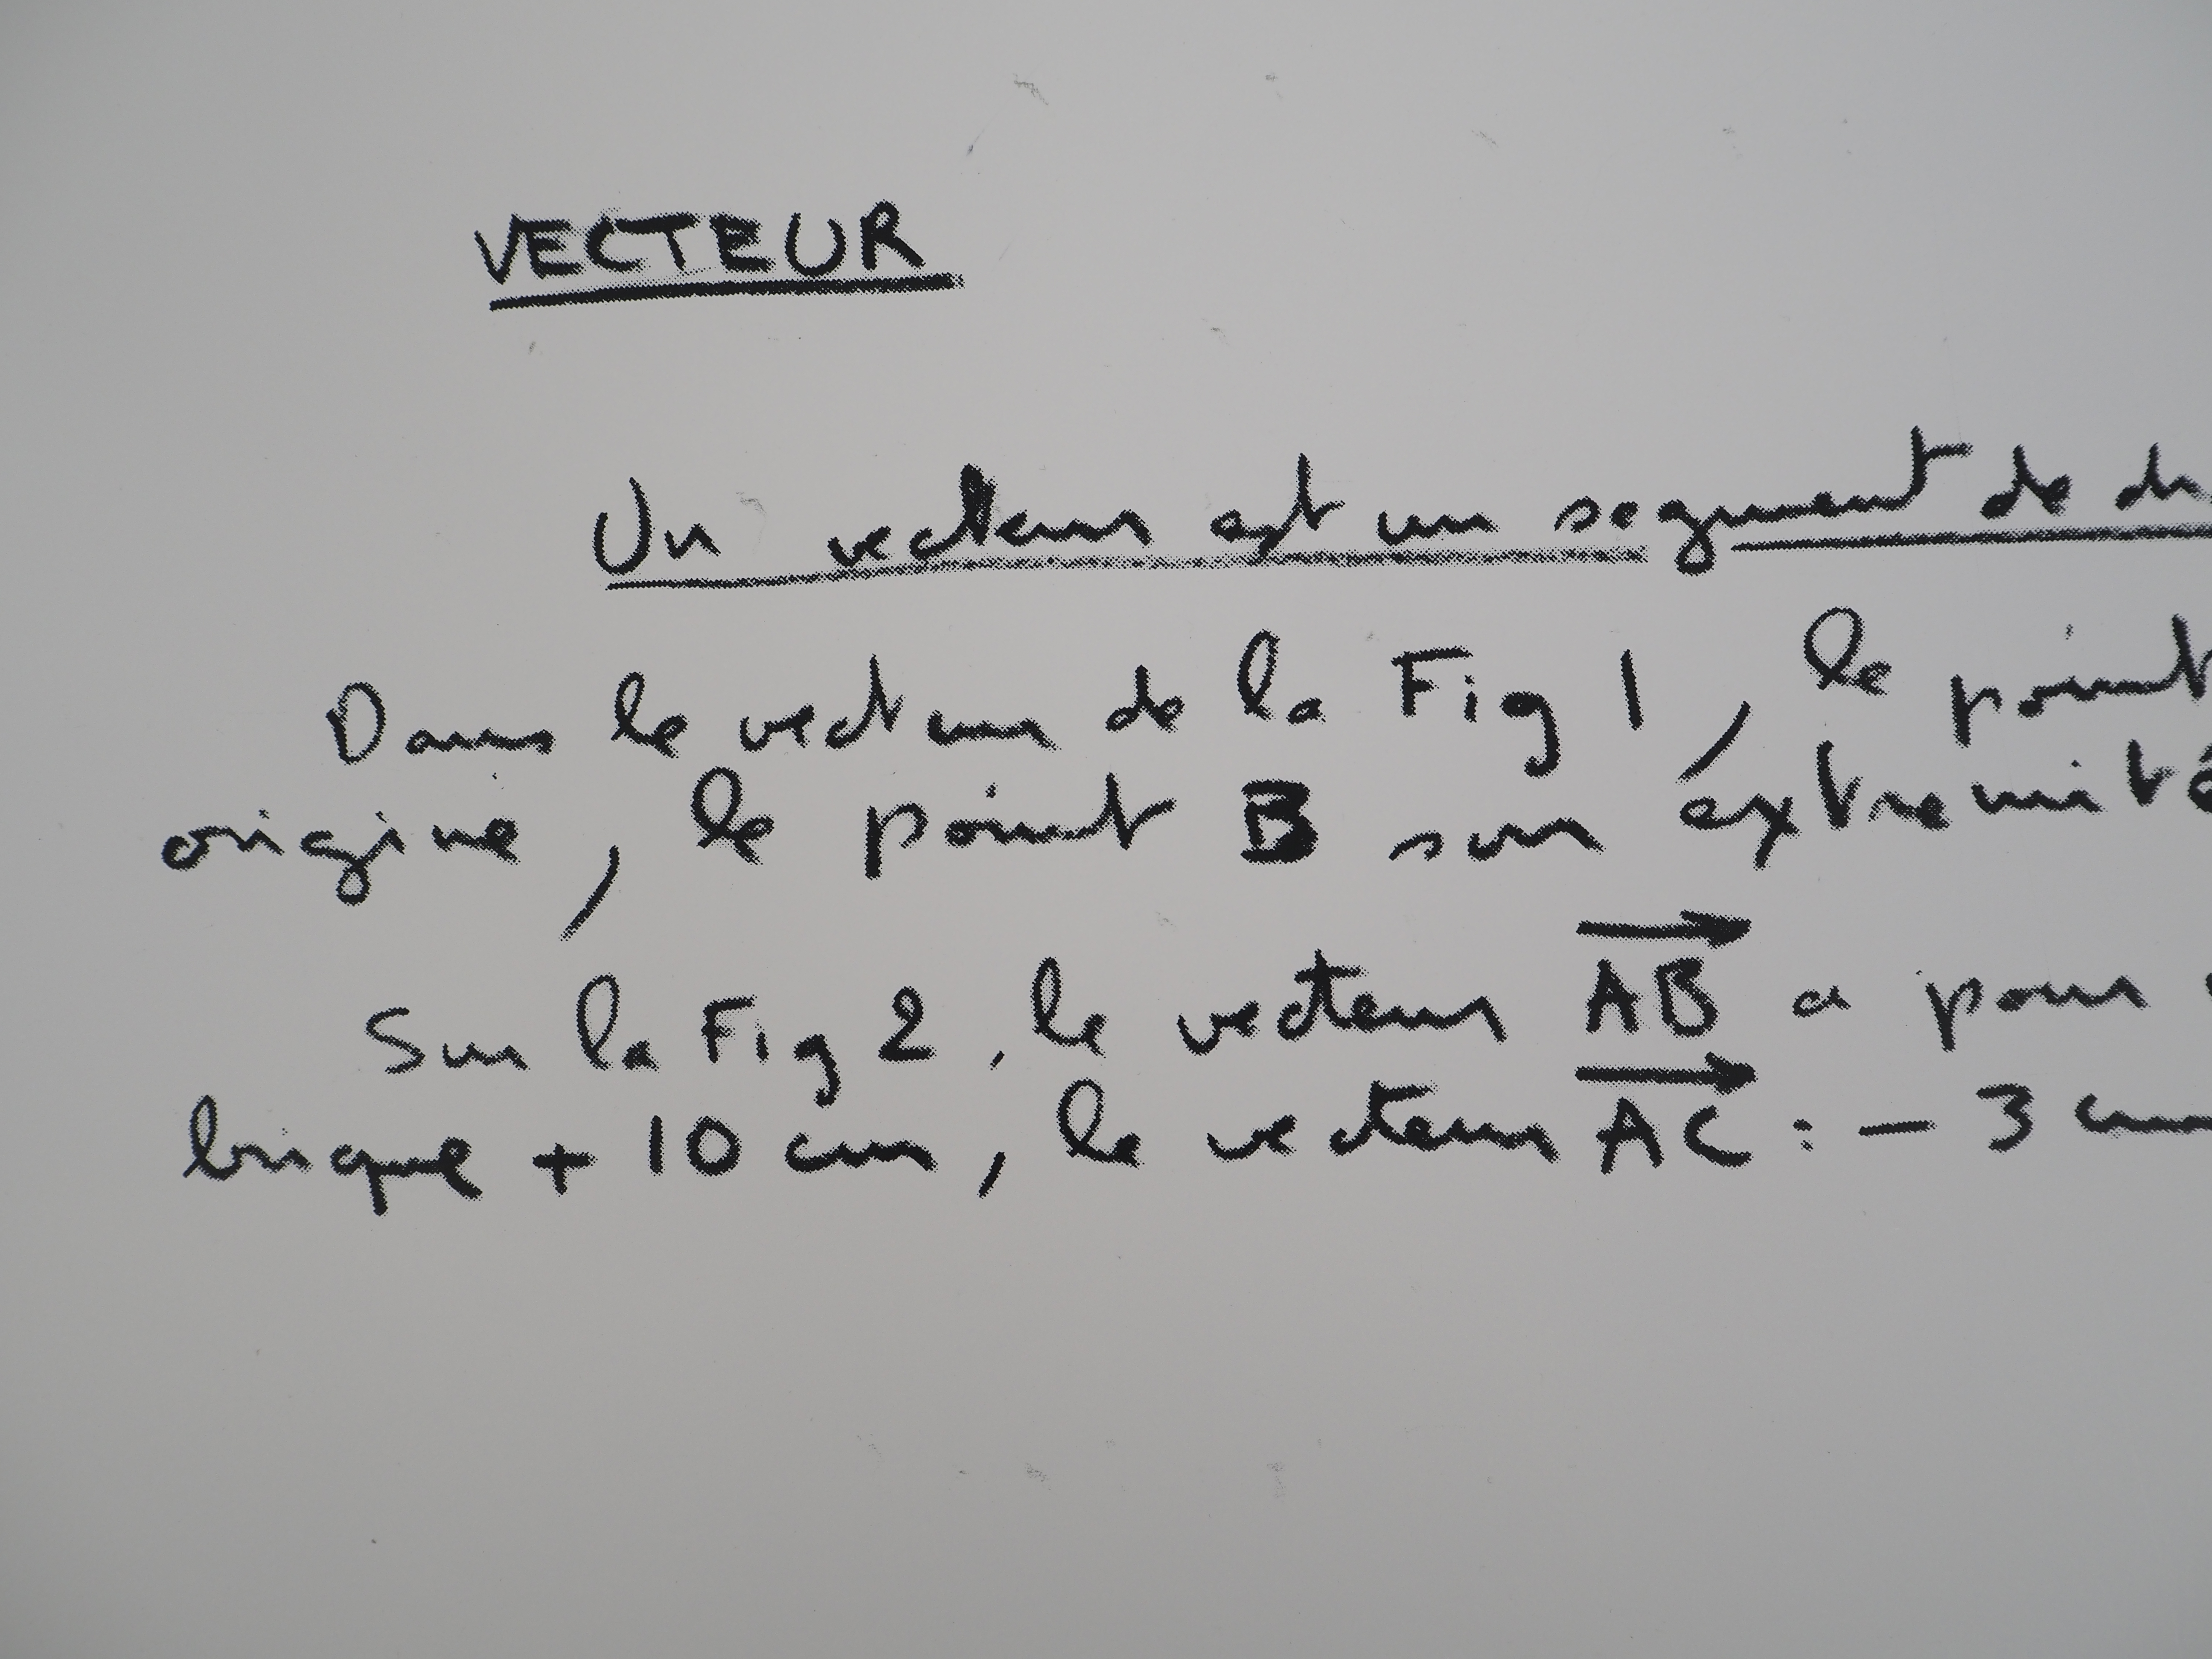 VECTEUR
Un vecteur est un segment de
Dans le vecteur de la Fig 1, le point
origine, le point B son extremité
Sur la Fig 2, le vecteur AB a pour
brique + 10 cm, le vecteur AC : - 3 cm